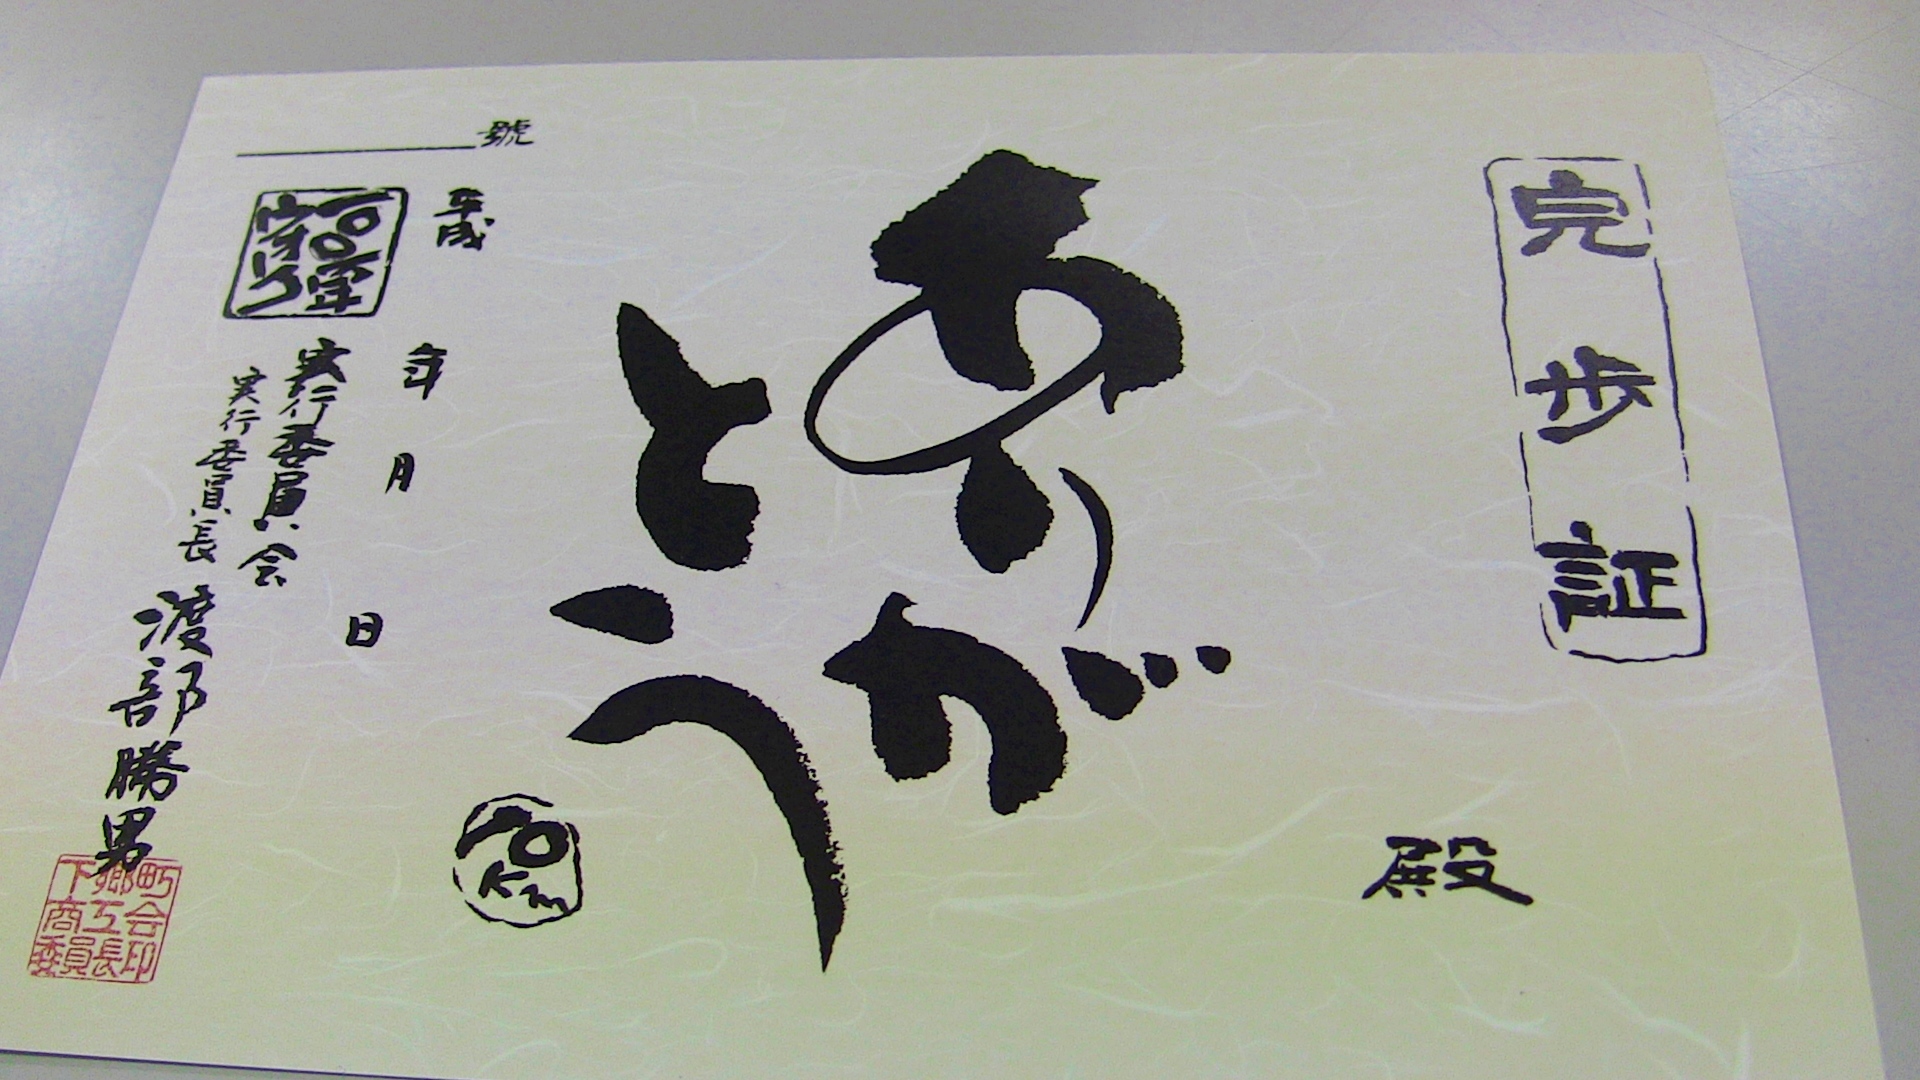 完歩証
殿
ありがとう
70
Km
平成 年 月 日
號
実行委員会
実行委員長 渡部勝男
下郷町
商工会
委員長印